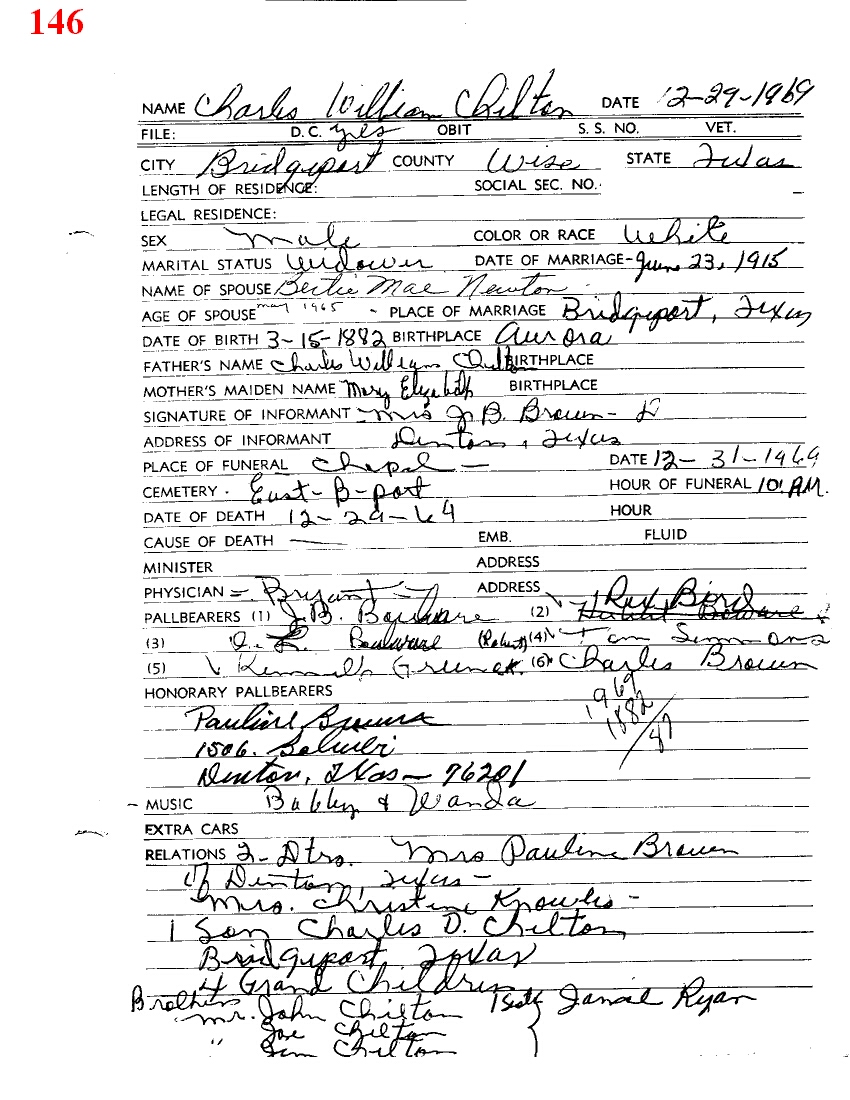 146
NAME Charles William Chilton DATE 12-29-1969
FILE: D.C. yes OBIT S. S. NO. VET.
CITY Bridgeport COUNTY Wise STATE Texas
LENGTH OF RESIDENCE: SOCIAL SEC. NO.
LEGAL RESIDENCE:
SEX Male COLOR OR RACE White
MARITAL STATUS Widower DATE OF MARRIAGE - June 23, 1915
NAME OF SPOUSE Bertie Mae Newton
AGE OF SPOUSE may 1965 - PLACE OF MARRIAGE Bridgeport, Texas
DATE OF BIRTH 3-15-1882 BIRTHPLACE Aurora
FATHER'S NAME Charles William Chilton BIRTHPLACE
MOTHER'S MAIDEN NAME Mary Elizabeth BIRTHPLACE
SIGNATURE OF INFORMANT - Mrs J. B. Brown - D
ADDRESS OF INFORMANT Denton, Texas
PLACE OF FUNERAL Chapel - DATE 12-31-1969
CEMETERY East-B-port HOUR OF FUNERAL 10: A.M.
DATE OF DEATH 12-29-69 HOUR
CAUSE OF DEATH — EMB. FLUID
MINISTER ADDRESS
PHYSICIAN - Bryant - ADDRESS
PALLBEARERS (1) J. B. Boulware (2) Rex Bird
(3) Boulware (Robert) (4) Tom Simmons
(5) Kenneth (6) Charles Brown
HONORARY PALLBEARERS
1969
1882
87
Pauline Brown
1506.
Denton, Texas - 76201
MUSIC Bobby & Wanda
EXTRA CARS
RELATIONS 2-Dtrs. Mrs Pauline Brown
of Denton, Texas -
Mrs. Christine Knowles -
1 Son Charles D. Chilton
Bridgeport, Texas
4 Grand Children
Brothers Mr. John Chilton Ryan
" Joe Chilton
Jim Chilton